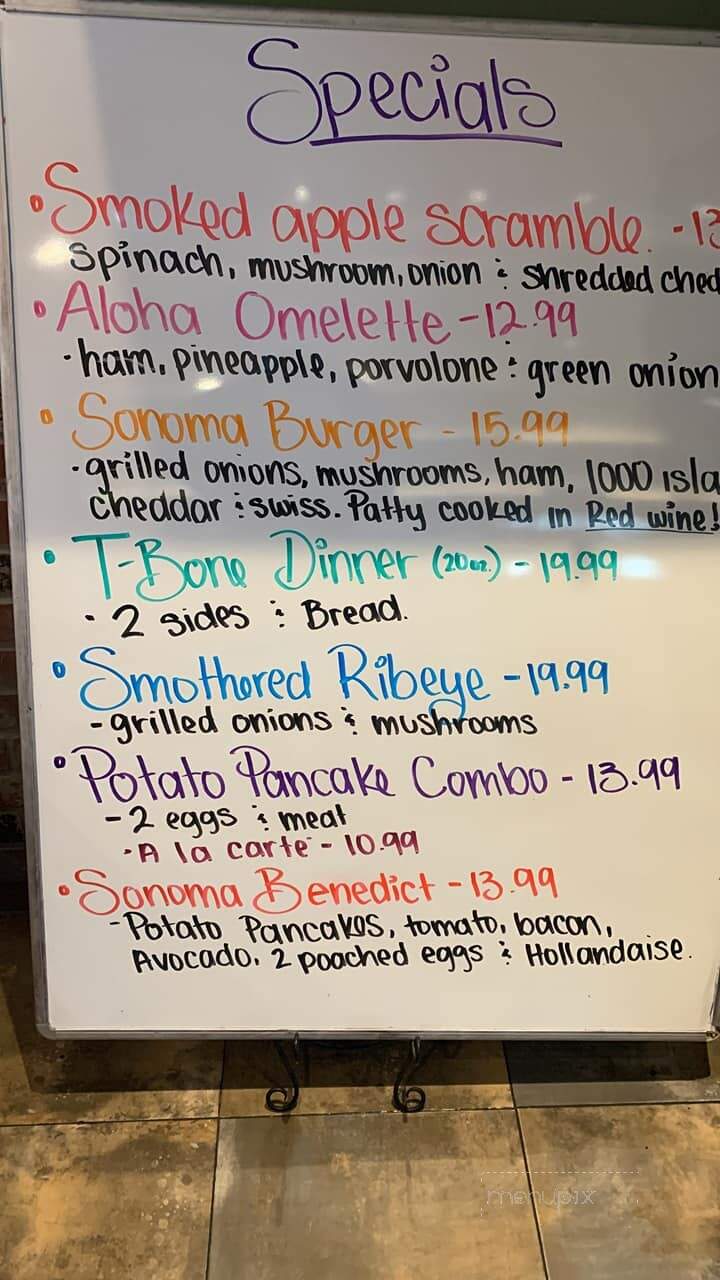 Specials
Smoked apple scramble. - 13
spinach, mushroom, onion & shredded ched
Aloha Omelette - 12.99
· ham, pineapple, porvolone & green onion
Sonoma Burger - 15.99
· grilled onions, mushrooms, ham, 1000 isla
cheddar & swiss. Patty cooked in Red wine!
T-Bone Dinner (20oz.) - 19.99
· 2 sides & Bread.
Smothered Ribeye - 19.99
- grilled onions & mushrooms
Potato Pancake Combo - 13.99
- 2 eggs & meat
· A la carte - 10.99
Sonoma Benedict - 13.99
- Potato Pancakes, tomato, bacon,
Avocado, 2 poached eggs & Hollandaise.
menupix